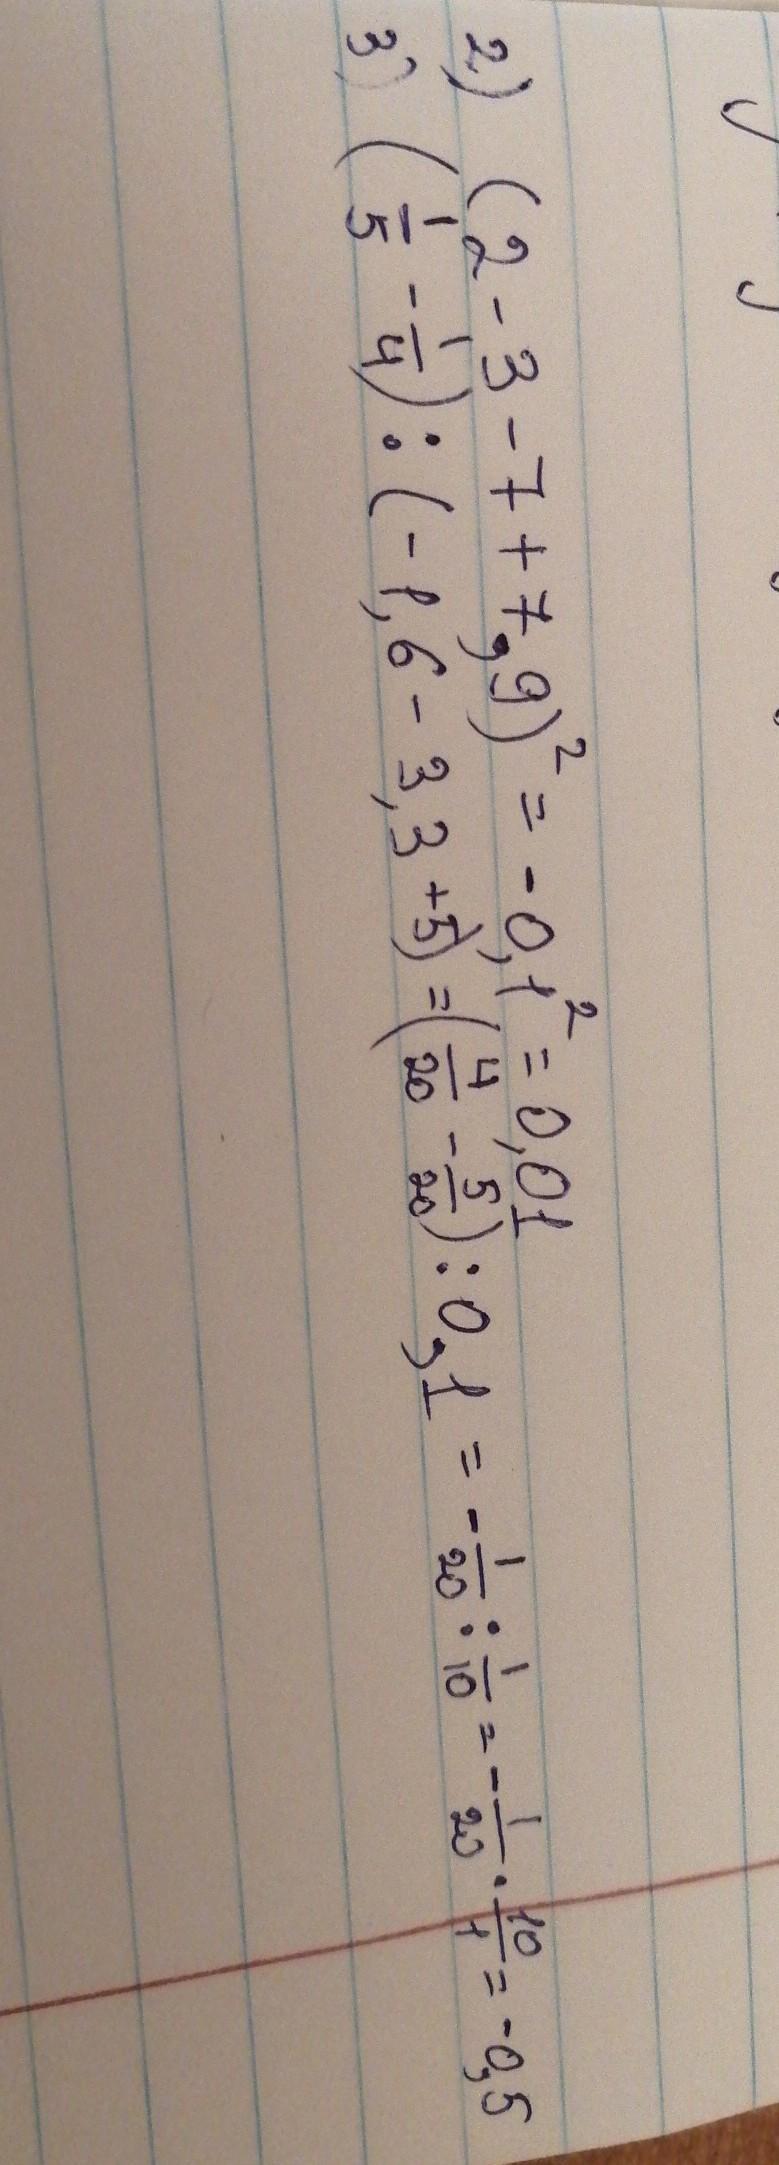 2) (2 - 3 - 7 + 7,9)² = -0,1² = 0,01
3) (1/5 - 1/4) : (-1,6 - 3,3 + 5) = (4/20 - 5/20) : 0,1 = -1/20 : 1/10 = -1/20 · 10/1 = -0,5